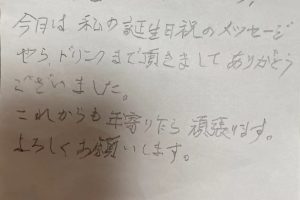 今月は 私の誕生日祝のメッセージ
やら、ドリンクまで頂きまして ありがとう
ございました。
これからも 年寄りたら 頑張ります。
よろしくお願いします。